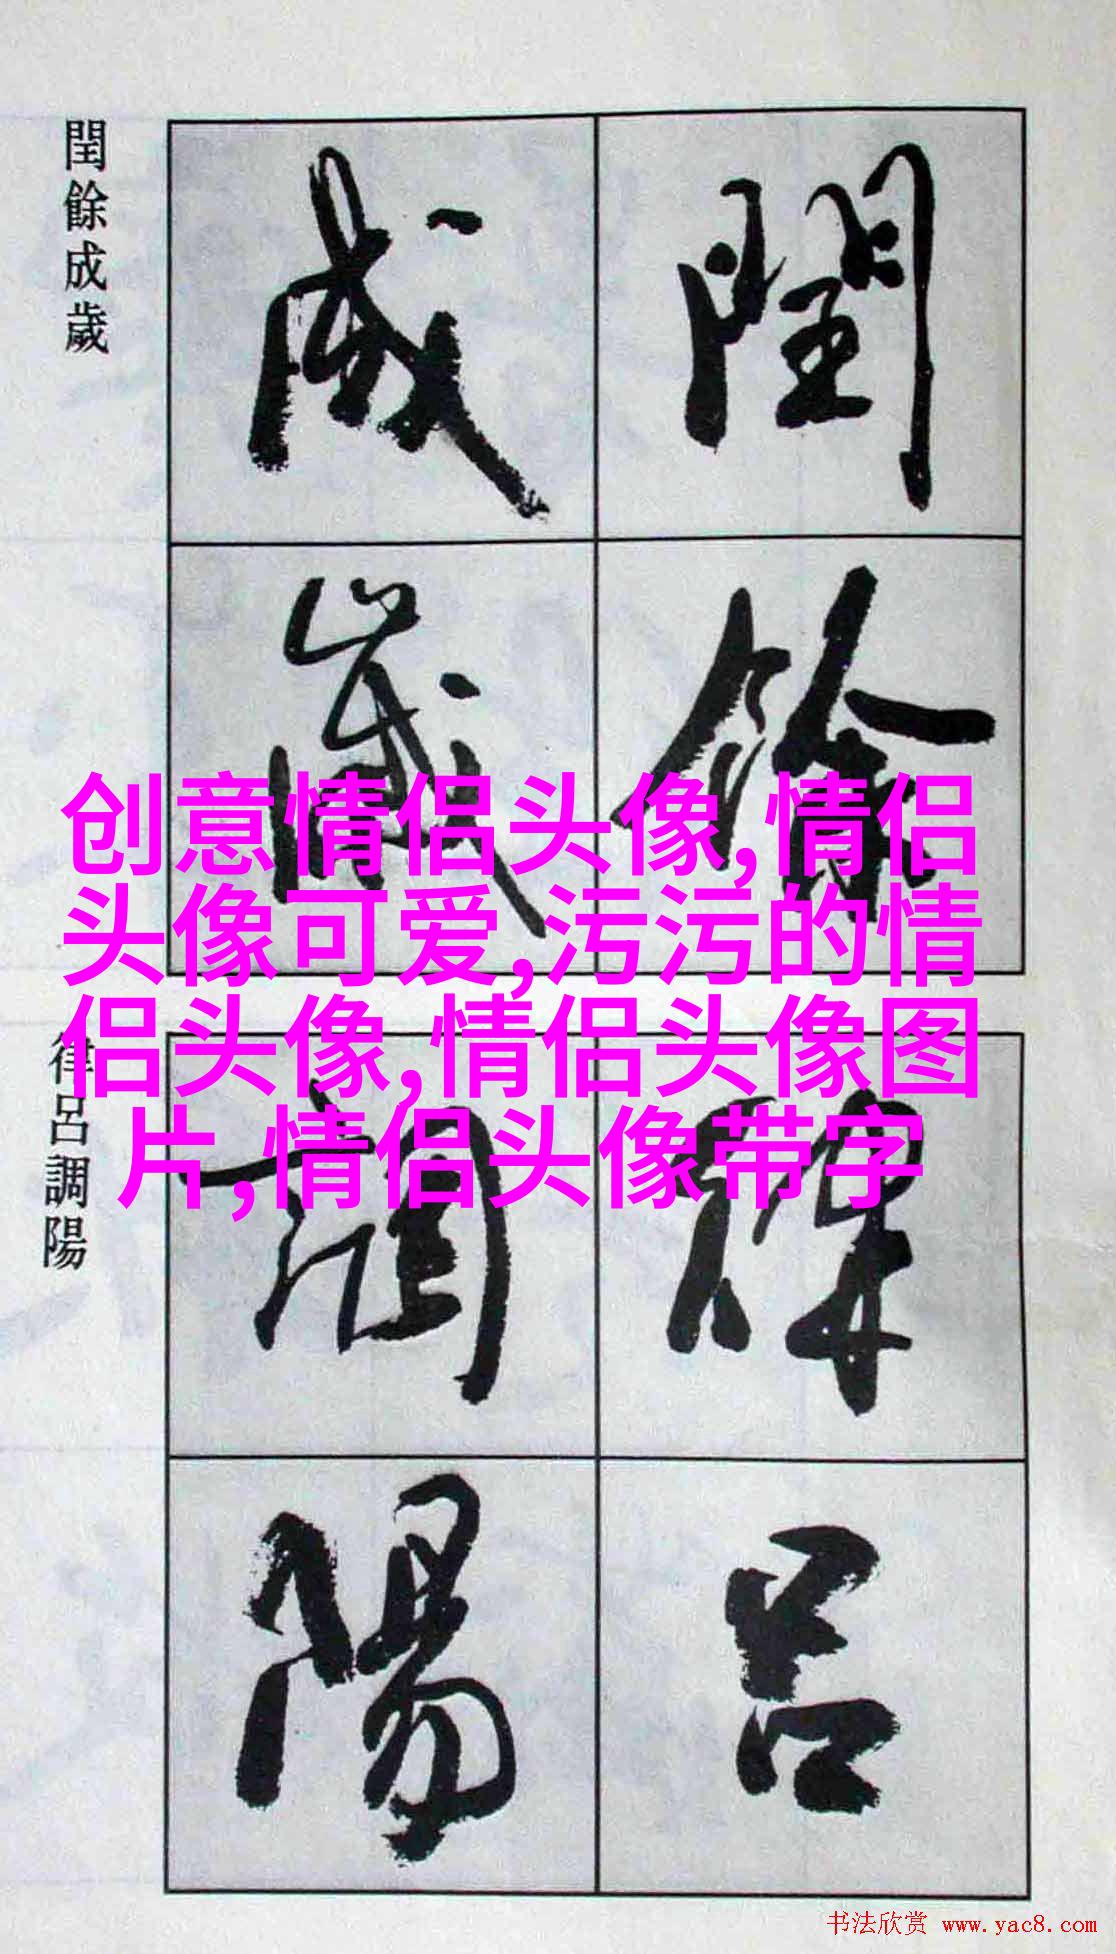 閏餘成歲
閏餘
成歲
创意情侣头像,情侣
头像可爱,污污的情
侣头像,情侣头像图
片,情侣头像带字
律呂調陽
律呂
調陽
书法欣赏 www.yac8.com